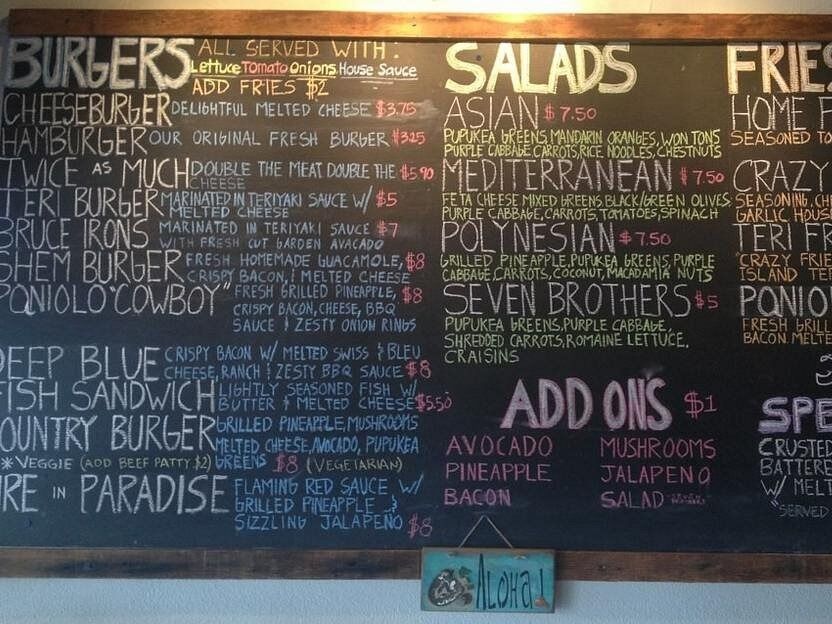 BURGERS ALL SERVED WITH:
Lettuce Tomato Onions House Sauce
ADD FRIES $2
CHEESEBURGER DELIGHTFUL MELTED CHEESE $3.75
HAMBURGER OUR ORIGINAL FRESH BURGER $325
TWICE AS MUCH DOUBLE THE MEAT DOUBLE THE CHEESE $5.90
TERI BURGER MARINATED IN TERIYAKI SAUCE W/ $5
MELTED CHEESE
BRUCE IRONS MARINATED IN TERIYAKI SAUCE $7
WITH FRESH CUT GARDEN AVACADO
SHEM BURGER FRESH HOMEMADE GUACAMOLE, $8
CRISPY BACON, & MELTED CHEESE
PANIOLO "COWBOY" FRESH GRILLED PINEAPPLE, $8
CRISPY BACON, CHEESE, BBQ
SAUCE & ZESTY ONION RINGS
DEEP BLUE CRISPY BACON W/ MELTED SWISS & BLEU
CHEESE, RANCH & ZESTY BBQ SAUCE $8
FISH SANDWICH LIGHTLY SEASONED FISH W/
BUTTER & MELTED CHEESE $5.50
OUNTRY BURGER GRILLED PINEAPPLE, MUSHROOMS
MELTED CHEESE, AVOCADO, PUPUKEA
* VEGGIE (ADD BEEF PATTY $2) GREENS $8 (VEGETARIAN)
IRE IN PARADISE FLAMING RED SAUCE W/
GRILLED PINEAPPLE &
SIZZLING JALAPEÑO $8
SALADS
ASIAN $7.50
PUPUKEA GREENS, MANDARIN ORANGES, WON TONS
PURPLE CABBAGE, CARROTS, RICE NOODLES, CHESTNUTS
MEDITERRANEAN $7.50
FETA CHEESE MIXED GREENS, BLACK/GREEN OLIVES
PURPLE CABBAGE, CARROTS, TOMATOES, SPINACH
POLYNESIAN $7.50
GRILLED PINEAPPLE, PUPUKEA GREENS, PURPLE
CABBAGE, CARROTS, COCONUT, MACADAMIA NUTS
SEVEN BROTHERS $5
PUPUKEA GREENS, PURPLE CABBAGE,
SHREDDED CARROTS, ROMAINE LETTUCE,
CRAISINS
ADD ONS $1
AVOCADO MUSHROOMS
PINEAPPLE JALAPENO
BACON SALAD
FRIES
HOME F
SEASONED TO
CRAZY
SEASONING, CH
GARLIC HOUS
TERI FR
"CRAZY FRIE
ISLAND TE
PANIO
FRESH GRILL
BACON, MELTE
SPE
CRUSTED
BATTERE
W/ MELT
"SERVED
ALOHA!